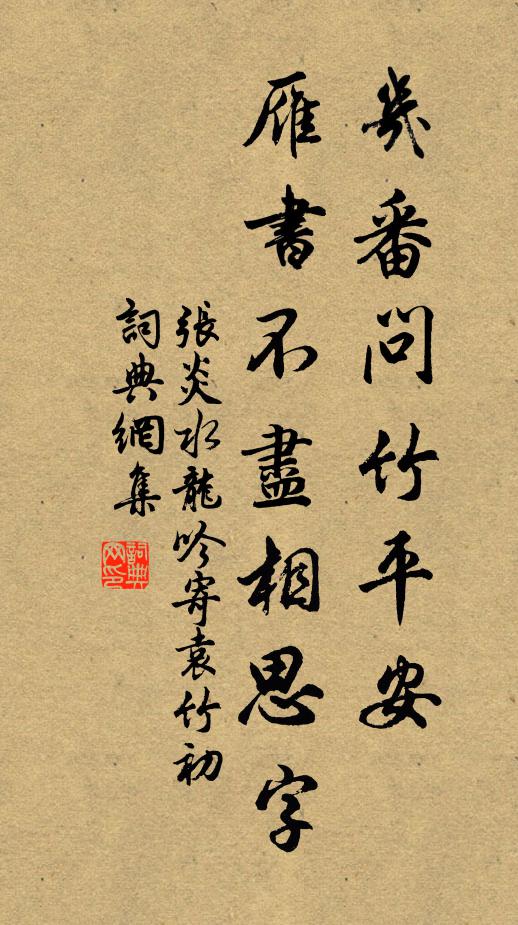 幾番問竹平安
雁書不盡相思字
張炎水龍吟寄袁竹初
詞典網集
詞典網印